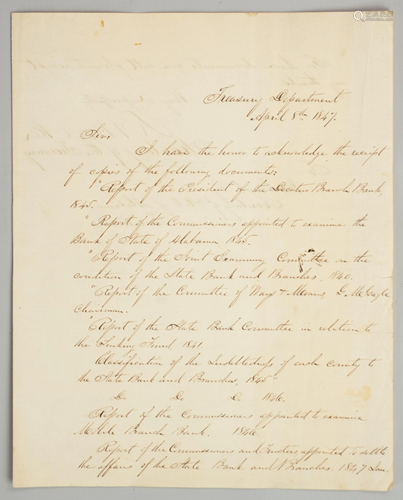 Treasury Department
April 8th 1847.
Sir,
I have the honor to acknowledge the receipt
of copies of the following documents:
"Report of the President of the Decatur Branch Bank,
1845.
" Report of the Commissioners appointed to examine the
Bank of State of Alabama 1845.
"Report of the Joint Examining Committee on the
condition of the State Bank and Branches. 1840.
"Report of the Committee of Ways & Means,
Chairman.
"Report of the State Bank Committee in relation to
the Sinking Fund 1841.
Classification of the Indebtedness of each county to
the State Bank and Branches, 1845"
Do. Do. Do. 1846.
Report of the Commissioners appointed to examine
Mobile Branch Bank. 1846.
Report of the Commissioners and appointed to settle
the affairs of the State Bank and Branches. 1847